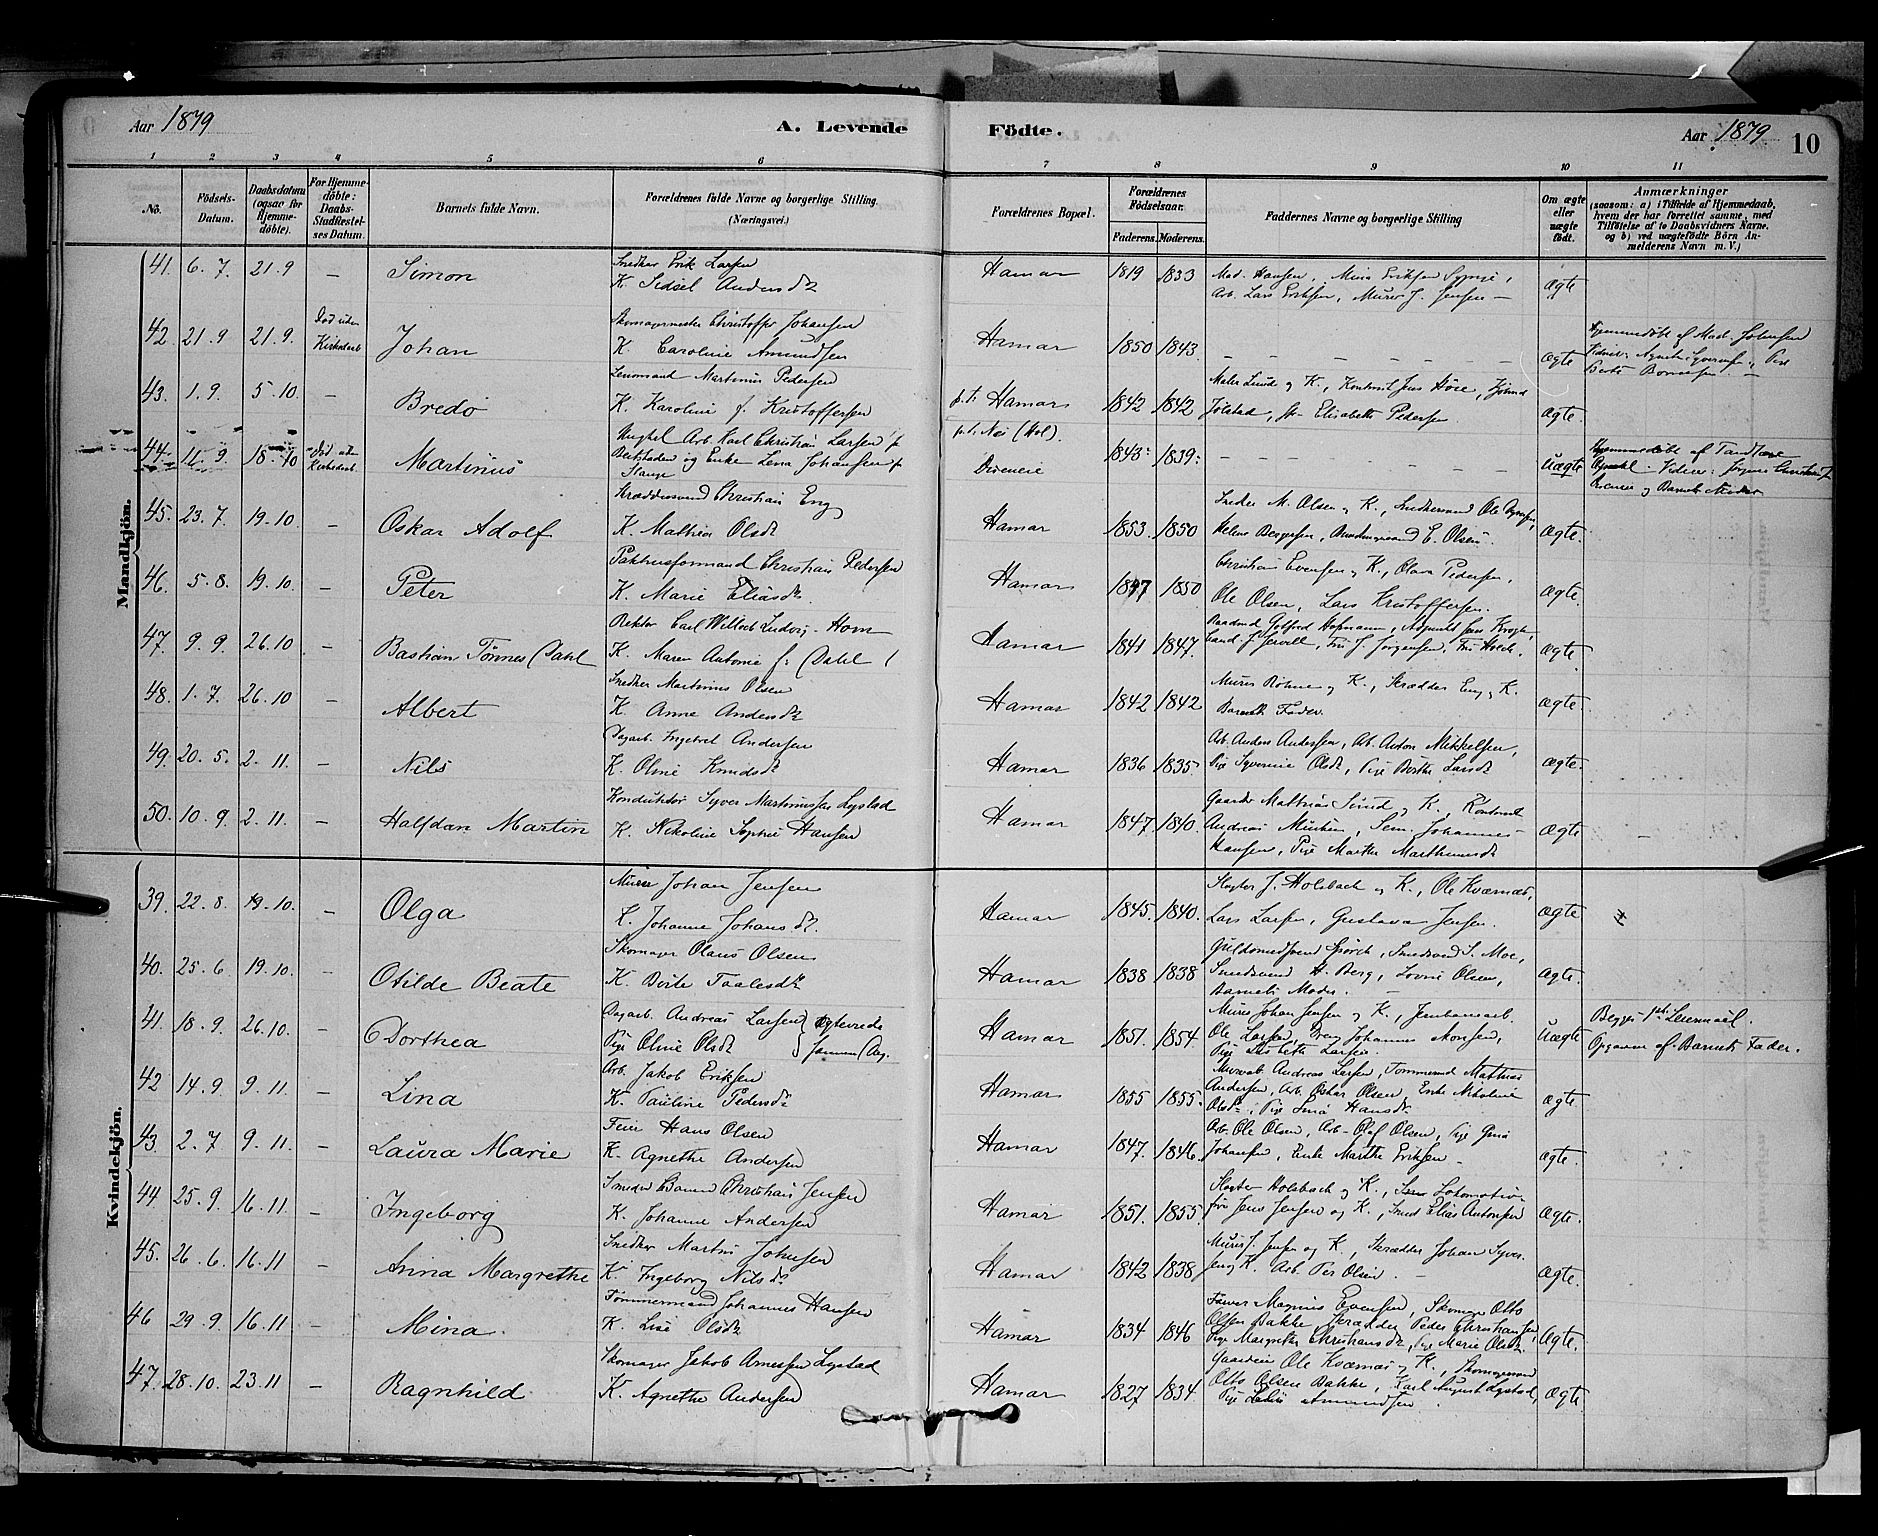 Aar 1879
A. Levende Födte.
Aar 1879
10
1 2 3 4 5 6 7 8 9 10 11
No.
Födsels-Datum.
Daabsdatum (ogsaa for Hjemmedöbte).
For Hjemmedöbte: Daabs-Stadfæstelses Datum.
Barnets fulde Navn.
Forældrenes fulde Navne og borgerlige Stilling (Næringsvei.)
Forældrenes Bopæl.
Forældrenes Födselsaar.
Faderens. Moderens.
Faddernes Navne og borgerlige Stilling
Om ægte eller uægte födt.
Anmærkninger
(saasom: a) i Tilfælde af Hjemmedaab, hvem der har forrettet samme, med Tilföielse af to Daabsvidners Navne, og b) ved uægtefödte Börn Anmelderens Navn m. V.)
Mandkjön.
41. 6. 7. 21. 9 – Simon
Snedker Erik Larsen
K. Sidsel Andersdt
Hamar 1819 1833
Mad. Hansen,
Arb. Lars Eriksen, Murer J. Jensen –
Ægte
42. 21. 9 21. 9. Död uden Kirkedaab Johan
Skomagermester Christoffer Johansen
K. Caroline Amundsen
Hamar 1850 1843. – – – – – – – Ægte
Hjemmedöbt af Mad.
43. 1. 9. 5. 10. – Bredo
Martinus Pedersen
K. Karoline f. Kristoffersen
p. t. Hamar 1842 1842
Maler Lund og K.,
Elisabeth Pedersen
Ægte.
44. 11. 9 18. 10 Död uden Kirkedaab Martinus
Ungkarl Arb. Karl Christian Larsen
og Enke Lena Johansen
Stange
1843: 1839: – – – – – – Uægte
Hjemmedöbt af
og Barnets Moder
45. 23. 7. 19. 10. – Oskar Adolf
Skræddersvend Christian Eng
K. Mathea Olsdt
Hamar 1853. 1850
M. Olsen og K., Snedkersvend Ole
Helene Bergersen, E. Olsen.
Ægte.
46. 5. 8. 19. 10. – Peter
Pakhusformand Christian Pedersen
K. Marie Eliasdt.
Hamar 1847 1850
Christian Evensen og K., Olava Pedersen,
Ole Olsen, Lars Kristoffersen.
Ægte.
47. 9. 9. 26. 10 – Bastian Tönnes (Dahl
Rektor Carl Wilhelm Ludvig Horn
K. Maren Antonie f: (Dahl)
Hamar 1841 1847.
Gotfred Hofmann, Adjunkt Jens Krogh,
Cand. J. Fru J. Jörgensen, Fru
Ægte.
48. 1. 7. 26. 10 – Albert
Snedker Martinus Olsen
K. Anne Andersdt
Hamar 1842 1842
Murer Böhme og K., Skrædder Eng og K.
Barnets Fader.
Ægte.
49. 20. 5. 2. 11. – Nils
Dagarb. Ingebret Andersen
K. Oline Knudsdt
Hamar 1836 1835
Arb. Anders Andersen, Arb. Anton Mikkelsen,
Pige Syverine Olsdt, Pige Berthe Larsdt
Ægte.
50. 10. 9. 2. 11. – Halfdan Martin
Konduktör Syver Martinussen Lystad
K. Nikoline Sophie Hansen
Hamar 1847. 1840.
Gaardbr. Mathias Sund og K.,
Andreas Johannes
Hansen, Pige Marthe
Ægte –
Kvindekjön.
39. 22. 8. 19. 10. – Olga
Murer Johan Jensen
K. Johanne Johansdt.
Hamar 1845. 1840.
Slagter J. Holsbach og K., Ole Kværnæs,
Lars Larsen, Gustava Jensen.
Ægte
40. 25. 6 19. 10. – Otilde Beate
Skomager Olaus Olsen
K. Berte Taalesdt
Hamar 1838 1838
Guldsmedsvend Smedsvend S. Moe,
Smedsvend H. Berg, Lovise Olsen,
Barnets Moder. –
Ægte.
41. 18. 9. 26. 10. – Dorthea
Dagarb. Andreas Larsen
Pige Oline Olsdt
ægteviede samme Dag.
Hamar 1851. 1854.
Murer Johan Jensen og K., Jernbanearb.
Ole Larsen, Dreng Johannes
Pige Lisbeth Larsen.
Uægte
Begges 1ste Leiermaal.
Opgaven af Barnets Fader.
42 14. 9 9. 11. – Lina
Arb. Jakob Eriksen
K. Pauline Pedersdt
Hamar 1855 1855.
Andreas Larsen, Tömmermd. Mathias
Andersen, Arb. Oskar Olsen, Enke Nikoline
Olsdt, Pige Hansdt.
Ægte.
43. 2. 7. 9. 11. – Laura Marie
Feier Hans Olsen
K. Agnethe Andersen
Hamar 1847. 1846.
Arb. Ole Olsen, Arb. Olaf Olsen, Pige
Johansen, Enke Marthe Eriksen –
Ægte.
44. 25. 9. 16. 11. – Ingeborg
Christian Jensen
K. Johanne Andersen
Hamar 1851. 1855.
Slagter Holsbach og K., Lokomotiv-
före Jens Jensen og K., Smed Elias Antonsen
Ægte.
45. 26. 6. 16. 11 – Anna Margrethe
Snedker Martin Johnsen
K. Ingeborg Nilsdt
Hamar 1842 1838
Murer J. Jensen og K., Skrædder Johan Syver-
sen og K. Arb. Per Olsen. –
Ægte.
46 29. 9. 16. 11 – Mina
Tömmermand Johannes Hansen
K. Lise Olsdt
Hamar 1834 1846
Farver Magnus Evensen, Skomager Otto
Olsen Bakke, Skrædder Peder Christiansen,
Pige Margrethe Christiansdt, Pige Marie Olsdt.
Ægte.
47. 28. 10. 23. 11 – Ragnhild
Skomager Jakob Arnesen Lystad
K. Agnethe Andersen
Hamar 1827 1834
Gaardeier Ole Kværnæs og K., Skomagersvend
Otto Olsen Bakke, Karl August Lystad,
Pige Amundsen.
Ægte